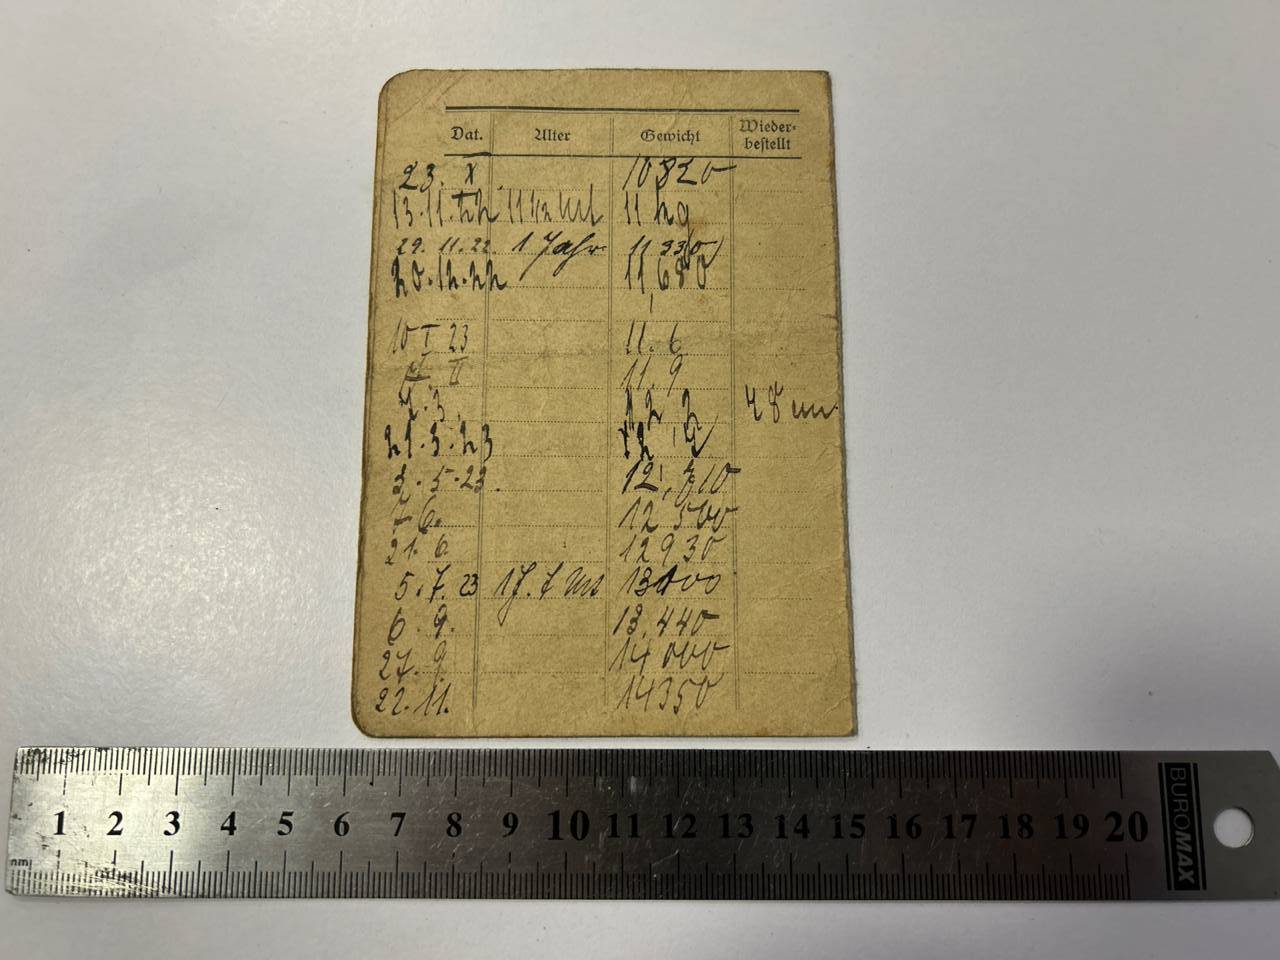 Dat. Alter Gewicht Wieder-
bestellt
23. X 10820
13.11.22 11 1/2 Mt 11 kg
29. 11. 22. 1 Jahr
20.12.22 11,680
10 I 23 11.6
II 11.9
7.3. 12,2 48 cm
21.3.23
5.23.
7.6. 12 500
21.6 12930
5.7.23 1 J. 7 Mt 13000
6.9. 13.440
27.9. 14000
22.11. 14350
1 2 3 4 5 6 7 8 9 10 11 12 13 14 15 16 17 18 19 20
BUROMAX